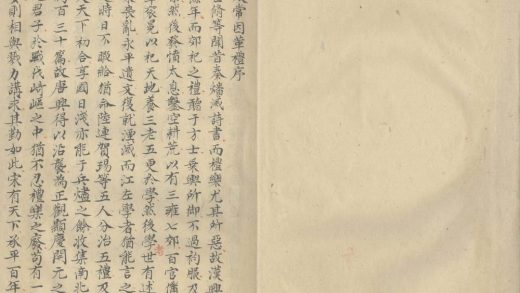 常因革禮序
等聞昔秦熸滅詩書而禮樂尤其所惡故漢興
年而郊祀之禮于方士乗輿所御不過袀服
然後發憤太息鑿空耕荒以有三雍七郊百官俻
冕以祀天地養三老五更於學然後學世有述
來喪亂永平遺文復就湮滅而江左學者猶能言之
時日不暇給猶命陸璉賀瑒等五人分治五禮凡
天下初合享國日淺亦能于兵燼之餘收集南北
百三十篇故唐興得以沿襲為正觀顯慶開元之
君子於戰伐崎嶇之中猶不忍禮樂之廢苟有一
則相與戮力講求其勤如此宋有天下承平百年